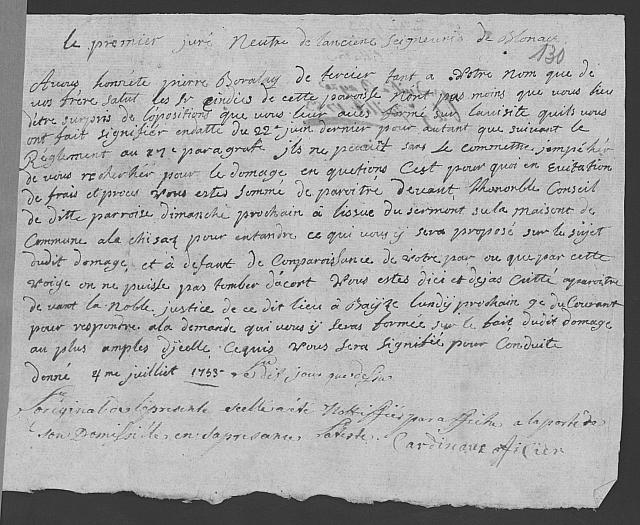 le premier juré Neutre de lanciene seigneurie de Blonay
130
A vous honnête pierre Boralay de fercier tant a Votre Nom que de
vos frère salut les Sr Cindics de cette paroisse Nont pas moins que vous lieu
dêtre surpris de lopositions que vous leur aves formé sur lavisite quils vous
ont fait signifier endatte du 22e juin dernier pour autant que suivant le
Reglement au paragrafe ils ne peuvit sans le commettre jempécher
de vous rechercher pour le domage en questions Cest pour quoi en Evitation
de frais et proces Vous estes sommé de paroitre devant Lhonorble Conseil
de ditte parroise dimanche prochain à lissue du sermont su la maisont de
Commune ala chisaz pour entandre ce qui vous y sera proposé sur le sujet
dudit domage et à défaut de Conparoissance de votre par ou que par cette
voige on ne puisse pas tomber dacort Vous estes dici et dejas Citté aparoitre
devant la Noble justice de ce dit lieu à Bayze lundy prochain 9e du Courant
pour respontre ala demande qui vous y seras formée sur le fait dudit domage
au plus amples dyelle Cequis Vous sera signifié pour Conduite
donné 4me juilliet 1753 dit jour que dessu
loriginal de la presente etelle aété Nottiffiée par affiche a la porte de
son Domissille en sa presance Lateste
Cardinaux officier